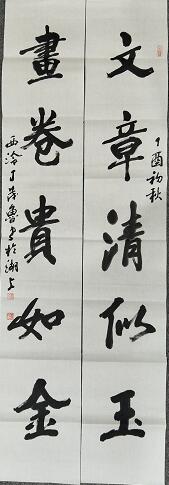 文章清似玉
丁酉初秋
畫卷貴如金
西泠丁茂魯書於湖上